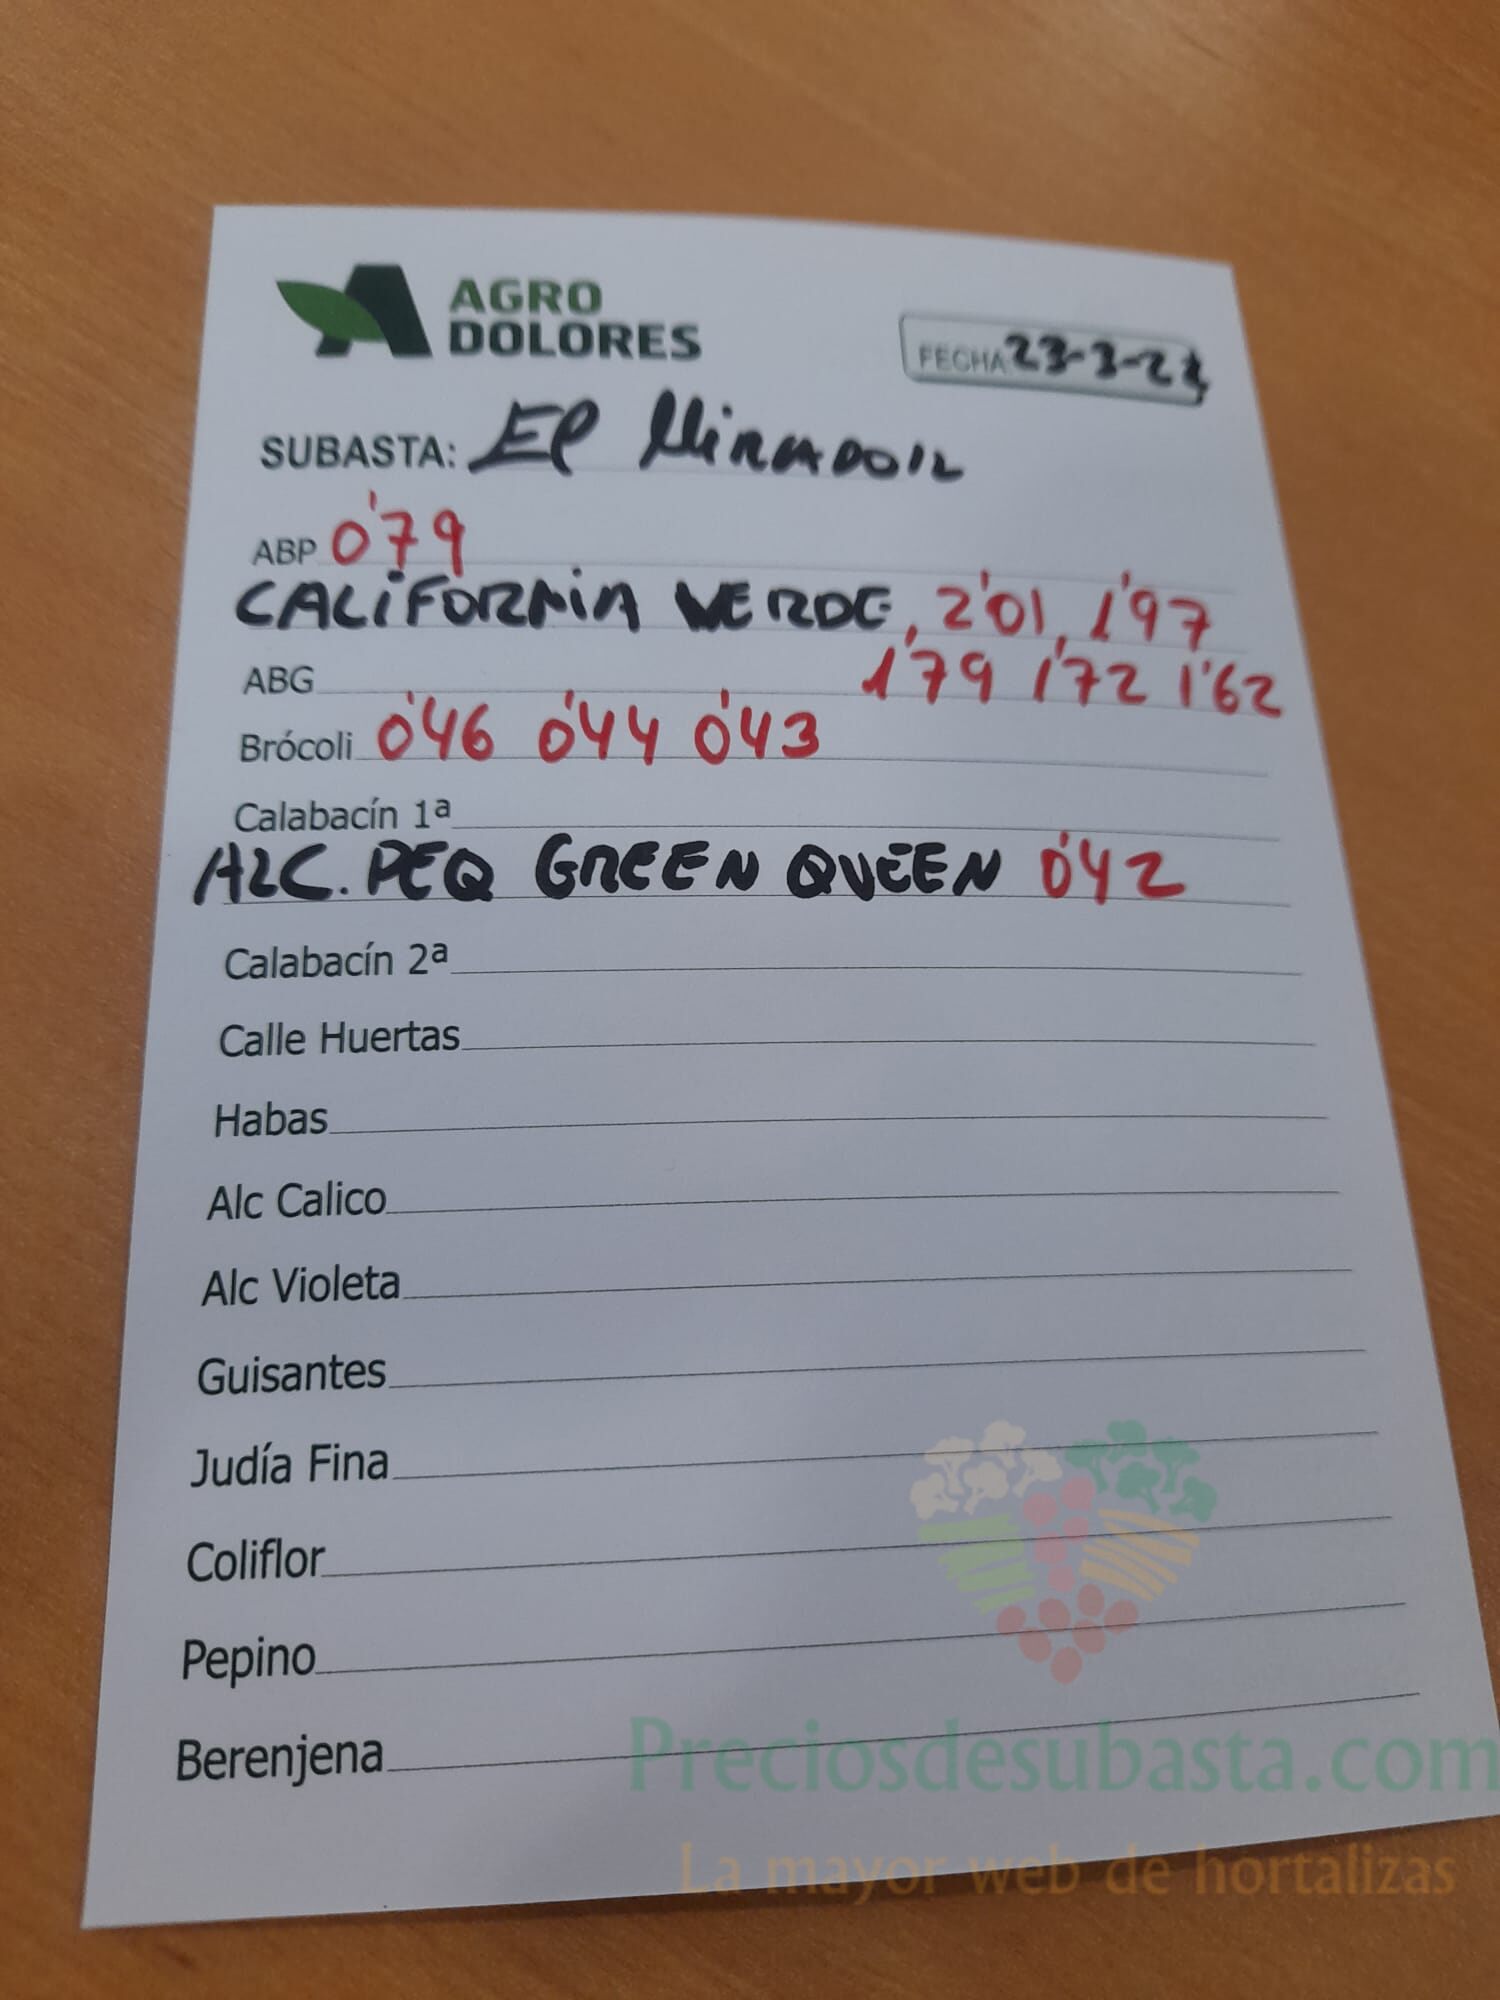 AGRO
DOLORES
FECHA 23-3-23
SUBASTA: El Mirador
ABP 0'79
CALIFORNIA VERDE, 2'01, 1'97
ABG 1'79 1'72 1'62
Brócoli 0'46 0'44 0'43
Calabacín 1ª
ALC. PEQ GREEN QUEEN 0'42
Calabacín 2ª
Calle Huertas
Habas
Alc Calico
Alc Violeta
Guisantes
Judía Fina
Coliflor
Pepino
Berenjena
Preciosdesubasta.com
La mayor web de hortalizas